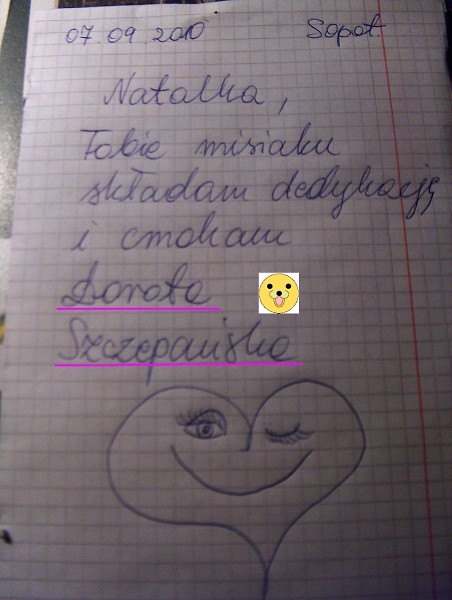 07.09.2010 Sopot
Natalka,
Tobie misiaku
składam dedykację
i cmokam
Dorota
Szczepańska